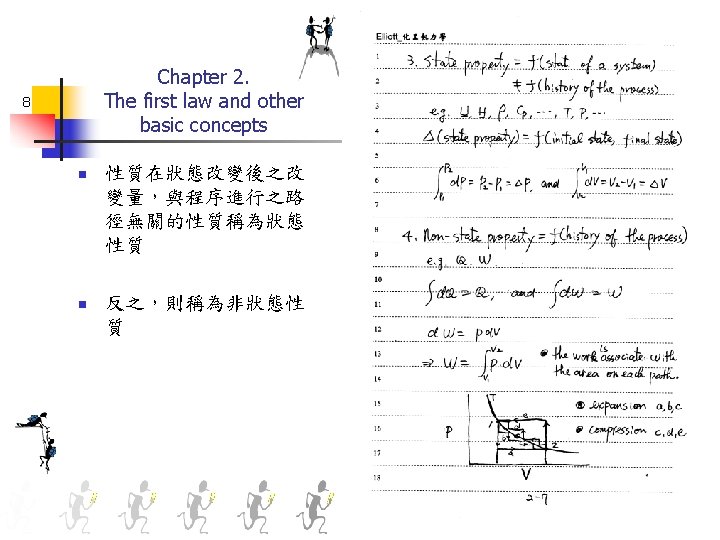 8
Chapter 2.
The first law and other
basic concepts
性質在狀態改變後之改
變量，與程序進行之路
徑無關的性質稱為狀態
性質
反之，則稱為非狀態性
質
Elliott_化工熱力學
1
3. State property = f(stat of a system)
2
≠ f(history of the process)
3
e.g. U, H, ρ, Cp, ..., T, P, ...
4
Δ(state property) = f(initial state, final state)
5
6
∫_{P1}^{P2} dP = P2 - P1 = ΔP, and ∫_{V1}^{V2} dV = V2 - V1 = ΔV
7
8
4. Non-state property = f(history of the process)
9
e.g. Q, W
10
∫dQ = Q, and ∫dW = W
11
12
dW = pdV
13
⇒ W = ∫_{V1}^{V2} P dV
the work is associate with
14
the area on each path.
15
expansion a,b,c
16
compression c,d,e
17
18
P
T
1
e
2
V
2-7